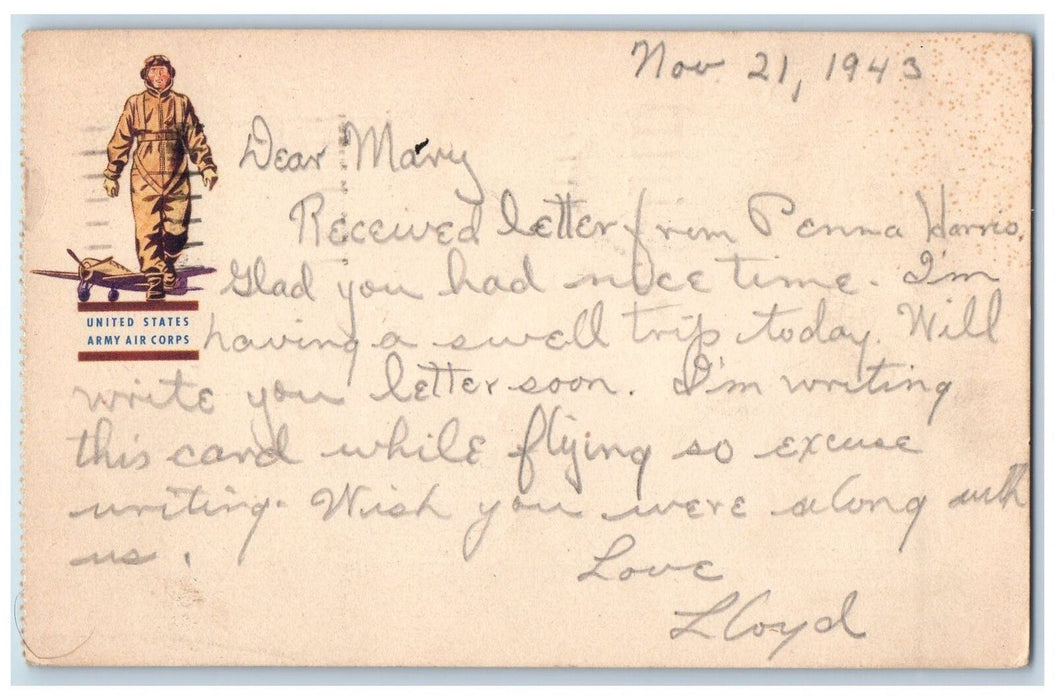 Nov 21, 1943
Dear Mary
Received letter from Penna Harris.
Glad you had nice time. I'm
having a swell trip today. Will
write you letter soon. I'm writing
this card while flying so excuse
writing. Wish you were along with
us.
Love
Lloyd
UNITED STATES
ARMY AIR CORPS